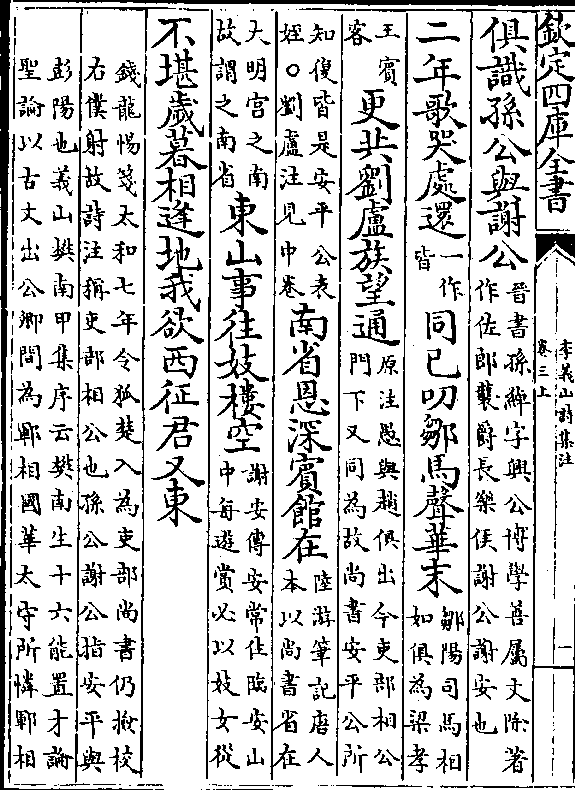 欽定四庫全書
李義山詩集注
卷三上
一
俱識孫公與謝公晉書孫綽字興公博學善屬文除著作佐郎襲爵長樂侯謝公謝安也
二年歌哭處還一作皆同已叨鄒馬聲華末鄒陽司馬相如俱為梁孝
王賓客更共劉盧族望通原注愚與趙俱出今吏部相公門下又同為故尚書安平公所
知復皆是安平公表姪○劉盧注見中卷南省恩深賓館在陸游筆記唐人本以尚書省在
大明宮之南故謂之南省東山事往妓樓空謝安傳安常往臨安山中每遊賞必以妓女從
不堪歲暮相逢地我欲西征君又東
錢龍惕箋太和七年令狐楚入為吏部尚書仍檢校
右僕射故詩注稱吏部相公也孫公謝公指安平與
彭陽也義山樊南甲集序云樊南生十六能置才論
聖論以古文出公卿間為鄆相國華太守所憐鄆相